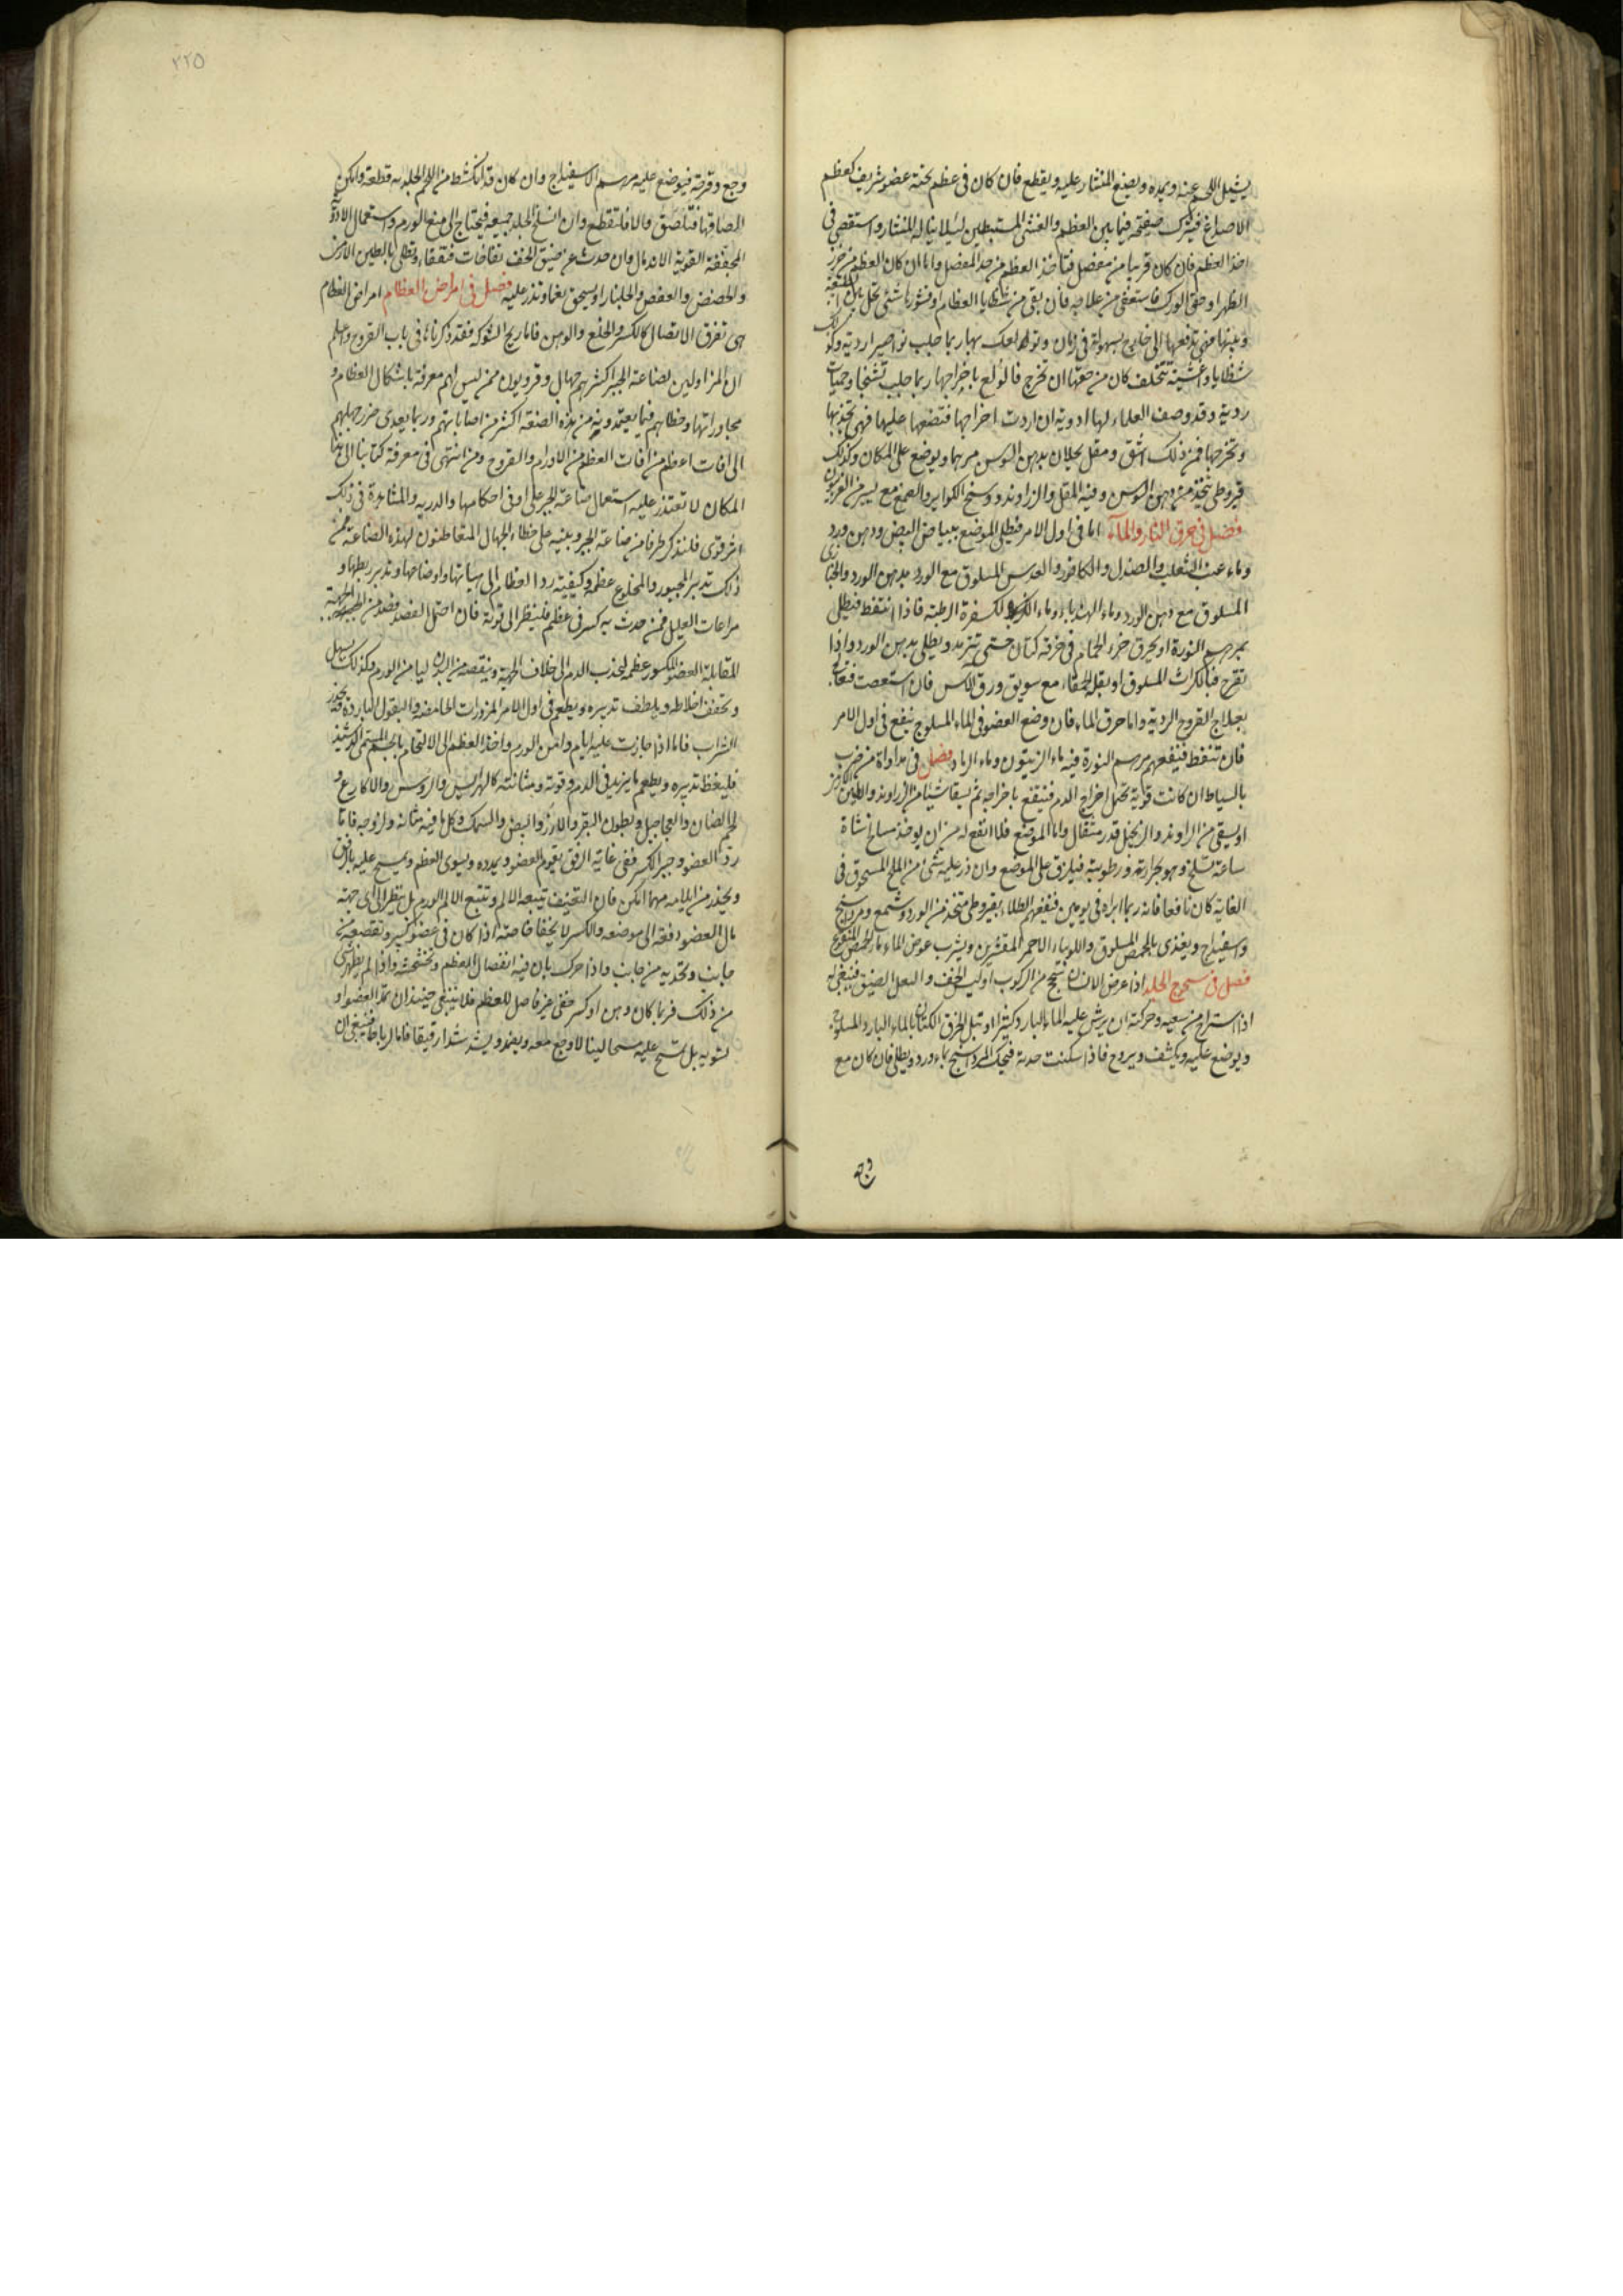 يشيل اللحم عنه ويمده ويضع المنشار عليه ويقطع فان كان في عظم تحته عضو شريف كعظم
الاصداغ فيترك صفيحة فيما بين العظم والغشى المستبطن ليلا يناله المنشار واستقصي في
اخذ العظم فان كان قريبا من مفصل فتاخذ العظم من حد المفصل واما ان كان العظم من خرز
الظهر او حق الورك فاستعفي من علاجه فان بقى من شظايا العظام او قشورها شئ تحل
وبينها فهي تدفعها الى خارج بسهولة في زمان وتولعك بها ربما جلب نواصير اردية
شظايا واغشية تتخلف كان من حقها ان تخرج فالولع باخراجها ربما جلب تشنجا وحميات
ردية وقد وصف العلماء لها ادوية ان اردت اخراجها فتضعها عليها فهي تجذبها
وتخرجها فمن ذلك اشق ومقل يحلان بدهن السوسن مرهما ويوضع على المكان وكذلك
قيروطى يتخذ من دهن السوسن وفيه المقل والزراوند ووسخ الكواير والصمغ مع يسير من الفربيون
فصل في حرق النار والماء اما في اول الامر فيطلى الموضع ببياض البيض ودهن ورد
وماء عنب الثعلب والصندل والكافور والعدس المسلوق مع الورد بدهن الورد والخبازى
المسلوق مع دهن الورد وماء الهندباء وماء الكسفرة الرطبة فاذا انتفط فيطلى
بمرهم النورة او يحرق خرء الحمام في خرقة كتان حتى تترمد ويطلى بدهن الورد واذا
تقرح فبالكراث المسلوق او بقلة الحمقاء مع سويق ورق الاس فان استعصت فتعالج
بعلاج القروح الردية واما حرق الماء فان وضع العضو في الماء المسلوج ينفع في اول الامر
فان تنفط فينفعهم مرهم النورة فيه ماء الزيتون وماء الرماد فصل في مداواة من ضرب
بالسياط ان كانت قوية تحتمل اخراج الدم فينفع باخراجه ثم يسقا شيئا من الزراوند والطين الارمنى
او يسقى من الراوند والزنجبيل قدر مثقال واما الموضع فلا انفع له من ان يوخذ مسلاخ شاة
ساعة تسلخ وهو بحرارته ورطوبته فيلزق على الموضع وان ذر عليه شئ من الملح المسحوق في
الغاية كان نافعا فانه ربما ابراه في يومين فينفعهم الطلاء بقيروطى متخذ من الورد وشمع ومرداسنج
واسفيداج ويغذى بالحمص المسلوق واللوبياء الاحمر المقشرين ويشرب عوض الماء ماء الحمص المنقوع
فصل في سحوج الجلد اذا عرض الانسان تسحج من الركوب او لبس الخف والنعل الضيق فينبغي له
اذا استراح من سعيه وحركته ان يرش عليه الماء البارد كثيرا او تبل الخرق الكتان بالماء البارد المسلوج
ويوضع عليه ويكشف ويروح فاذا سكنت حدته فيحك المرداسنج بماء ورد ويطلى فان كان مع
وجع
٢٢٥
وجع وقرحة فيوضع عليه مرهم الاسفيداج وان كان قد انكشط من اللحم الجلد به قطعة وامكن
الصاقها فتلصق والا فلتقطع وان انسلخ الجلد جميعه فيحتاج الى منع الورم واستعمال الادوية
المجففة القوية الاندمال وان حدث عن ضيق الخف نفاخات فتفقا وتطلى بالطين الارمنى
والحضض والعفص والجلنار او يسحق لغا وتذر عليه فصل في امراض العظام امراض العظام
هى تفرق الاتصال كالكسر والخلع والوهن فاما ريح الشوكة فقد ذكرناها في باب القروح واعلم
ان المزاولين لصناعة الجبر اكثرهم جهال وقرويون ممن ليس لهم معرفة باشكال العظام و
مجاوراتها وخطاهم فيما يعتمدونه من هذه الصنعة اكثر من اصاباتهم وربما يعدى ضرر جهلهم
الى افات اعظم من افات العظم من الاورام والقروح ومن انتهى في معرفة كتابنا الى هذا
المكان لا تعتذر عليه استعمال صناعة الجبر على اوفى احكامها والدربه والمشاهدة في ذلك
اشر قوى فلنذكر طرفا من صناعة الجبر وبنيه على خطاء الجهال المتعاطنون لهذه الصناعة فمن
ذلك تدبير المجبور والمخلوع عظمه وكيفية رد العظام الى هياتها واوضاعها وتدبير ربطها و
مراعات العليل فمن حدث به كسر في عظم فلينظر الى قوته فان احتمل الفصد فصد من الجهة
المقابلة العضو المكسور عظمه لتجذب الدم الى خلاف الجهة وينقصه من البدن ليامن الورم وكذلك يسهل
ويخفف اخلاطه ويلطف تدبيره ويطعم في اول الامر المزورات الحامضة والبقول الباردة
الشراب فاما اذا جازت عليه ايام وامن الورم واخذ العظم الى الالتحام بالجسم المسمى الدشبذ
فليغلظ تدبيره ويطعم ما يزيد في الدم وقوته ومتانته كالهرايس والروس والاكارع و
لحم الضان والعجاجيل وبطون البقر والارز والبيض والسمك وكل ما فيه متانة ولزوجة فاما
رد العضو وجبر الكسر ففي غاية الرفق يقوم العضو ويمدده ويسوى العظم ويمسح عليه بالرفق
ويحذر من ايلامه مهما امكن فان التعنيف يتبعه الالم وتتبع الالم الورم بل ينظر الى اى جهة
مال العضو دفعه الى موضعه والكسر لا يخفا خاصة اذا كان في عضو كبير وتقصعه من
جانب وتحدبه من جانب واذا حرك بان فيه انفصال العظم وتخشخشه واذا لم يظهر شئ
من ذلك فربما كان وهن او كسر خفى غير فاصل للعظم فلا ينبغى حينئذ ان تمد العضو او
تسويه بل تمسح عليه مسحا لينا لا وجع معه ويضمد ويشد شدا رقيقا فاما الرباط فينبغى ان